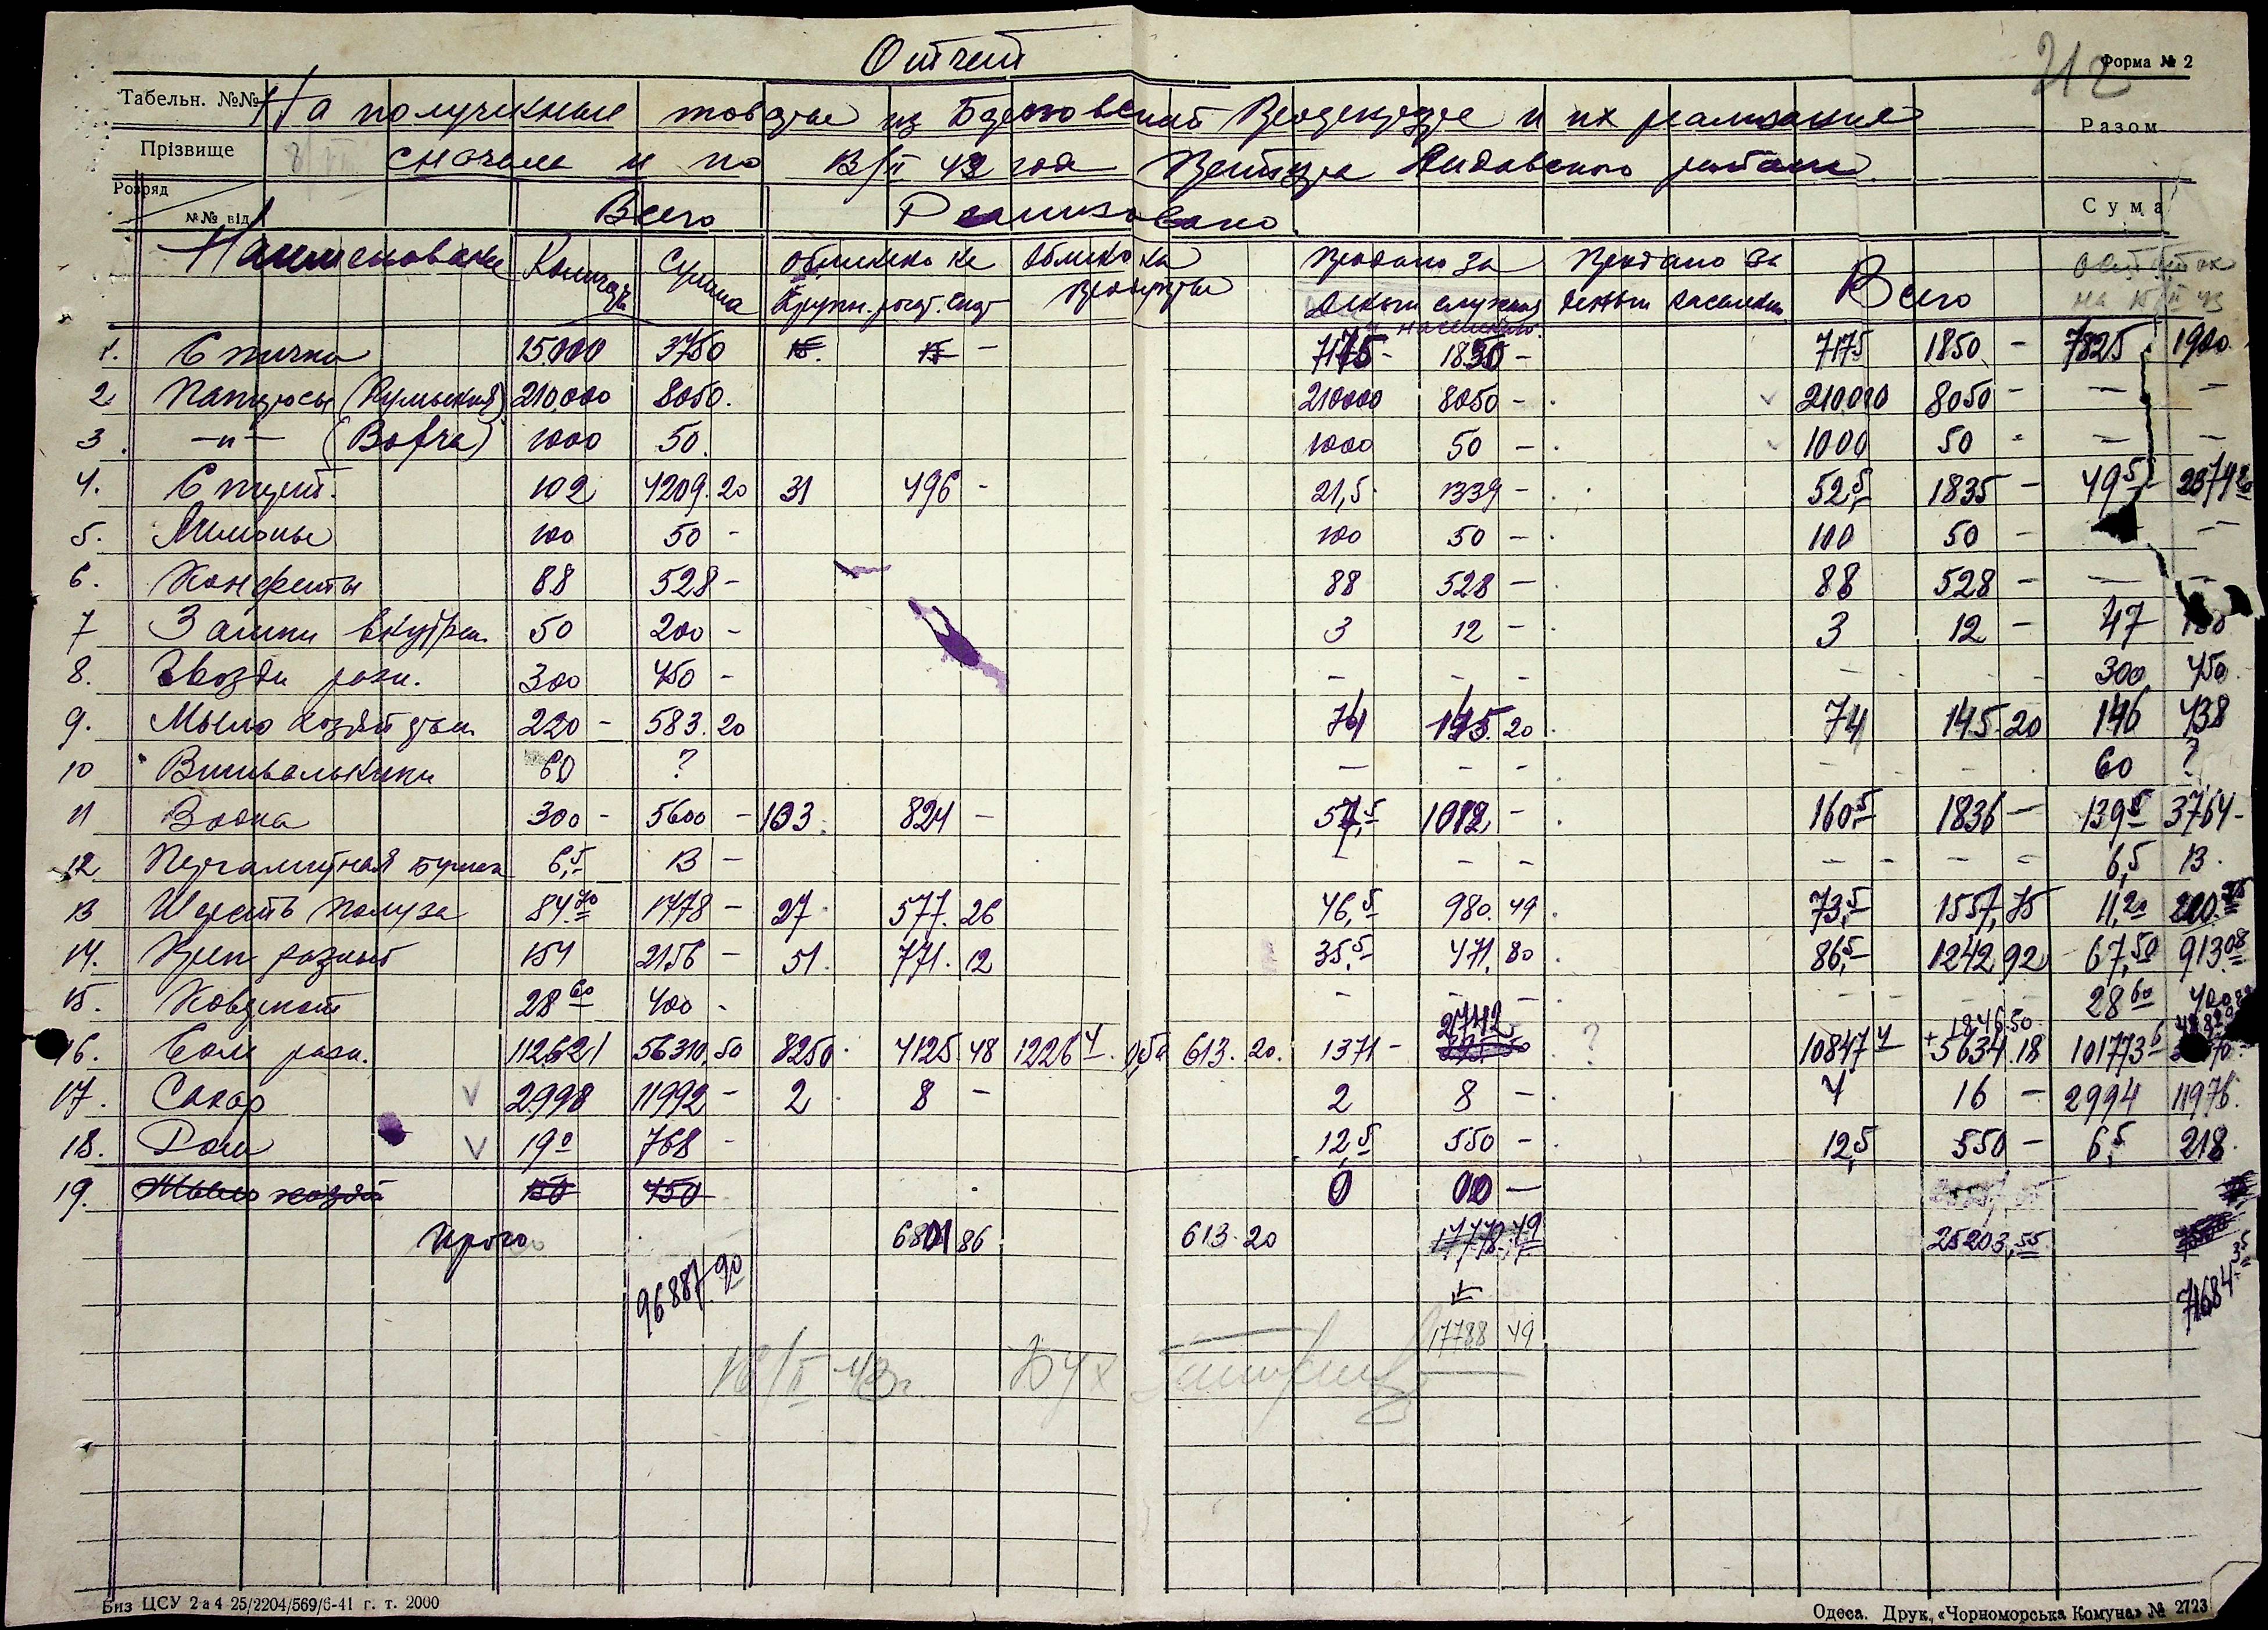 Отчет
Форма № 2
212
Табельн. №№ На полученные товары из Березовской и их реализация
Разом
Прізвище сначала и по 13/II 43 год района
Розряд
№№ від. Всего Реализовано Сума
Наименование Колич. Сумма Обменено на Обмено на Продано за Продано за Всего остаток
продукты деньги служащ. деньги на 15/II 43
населению
1. Спички 15.000 3750 7175 - 1850 - 7175 1850 - 7825 1900
2. Папиросы (Румыния) 210.000 8050. 210000 8050 - 210.000 8050 - — -
3. -"- 1000 50. 1000 50 - 1000 50 - — -
4. Спирт. 102 4209.20 31 496 - 21,5 1339 - 52,5 1835 - 49,5 2374,20
5. Лимоны 100 50 - 100 50 - 100 50 - -
6. Конфеты 88 528 - 88 528 - 88 528 - — -
7 Замки внутрен. 50 200 - 3 12 - 3 12 - 47
8. Гвозди разн. 300 450 - - - - - - 300 450
9. Мыло 220 - 583.20 74 145.20 74 145.20 146 438
10 60 ? — - - - - 60 ?
11 Водка 300 - 5600 - 103. 824 - 57,5 1012 - 160,5 1836 - 139,5 3764 -
12 Пергаментная бумага 6,5 13 - - - - - - - - 6,5 13.
13 Шерсть 84,70 1778 - 27 577.26 46,5 980.49 73,5 1557,75 11,20 220.25
14. разный 154 2156 - 51. 771.12 35,5 471.80 86,5 1242,92 67,50 913.08
15. 28 60 400 - - - - - - 28 60 400
16. Соль разн. 112621 56310,50 8250. 4125.48 1226 4 0,50 613.20. 1371 - 2742 ? 10847 4 1846.50 + 5634.18 101773 6
17. Сахар V 2998 11992 - 2 8 - 2 8 - 4 16 - 2994 11976.
18. Ром V 19 0 768 - 12,5 550 - 12,5 550 - 6,5 218.
19. Мыло хозяй 150 450 0 00 -
Итого 6801 86 613.20 17778,49 25203,55
96887.90 71684.35
17788 49
16/II 43 г. Бух
Биз ЦСУ 2 а 4 25/2204/569/6-41 г. т. 2000
Одеса. Друк. «Чорноморська Комуна» № 2723